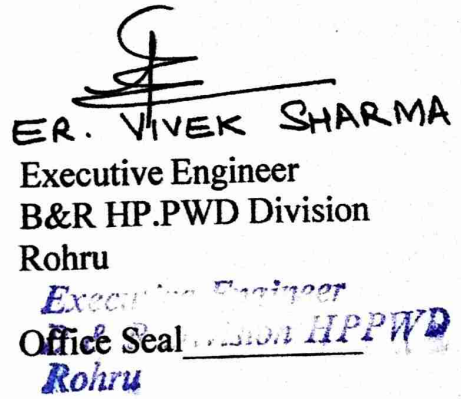 ER. VIVEK SHARMA
Executive Engineer
B&R HP.PWD Division
Rohru
Executive Engineer
Office Seal
HPPWD
Rohru